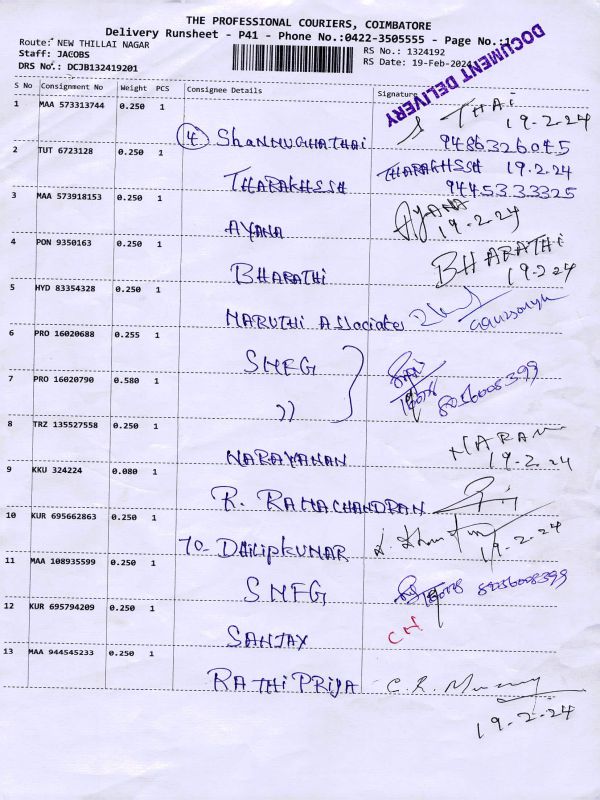 THE PROFESSIONAL COURIERS, COIMBATORE
Delivery Runsheet - P41 - Phone No.:0422-3505555 - Page No.:1
Route: NEW THILLAI NAGAR RS No.: 1324192
Staff: JACOBS RS Date: 19-Feb-2024
DRS No.: DCJB132419201
DOCUMENT DELIVERY
S No Consignment No Weight PCS Consignee Details Signature
1 MAA 573313744 0.250 1 4. Shanmughathai THAI 19-2-24
9486326045
2 TUT 6723128 0.250 1 THARAKHSSH THARAKHSSH 19.2.24
9445333325
3 MAA 573918153 0.250 1 AYANA AYANA 19-2-24
4 PON 9350163 0.250 1 BHARATHI BHARATHI 19-2-24
5 HYD 83354328 0.250 1 MARUTHI Associates
6 PRO 16020688 0.255 1 SMFG
7 PRO 16020790 0.580 1 )) 8056008399
8 TRZ 135527558 0.250 1 NARAYANAN NARAN 19-2-24
9 KKU 324224 0.080 1 R. RAMACHANDRAN
10 KUR 695662863 0.250 1 70- DHILIPKUMAR 19-2-24
11 MAA 108935599 0.250 1 SMFG 8056008399
12 KUR 695794209 0.250 1 SANJAY CN
13 MAA 944545233 0.250 1 RATHIPRIYA C.R.
19-2-24